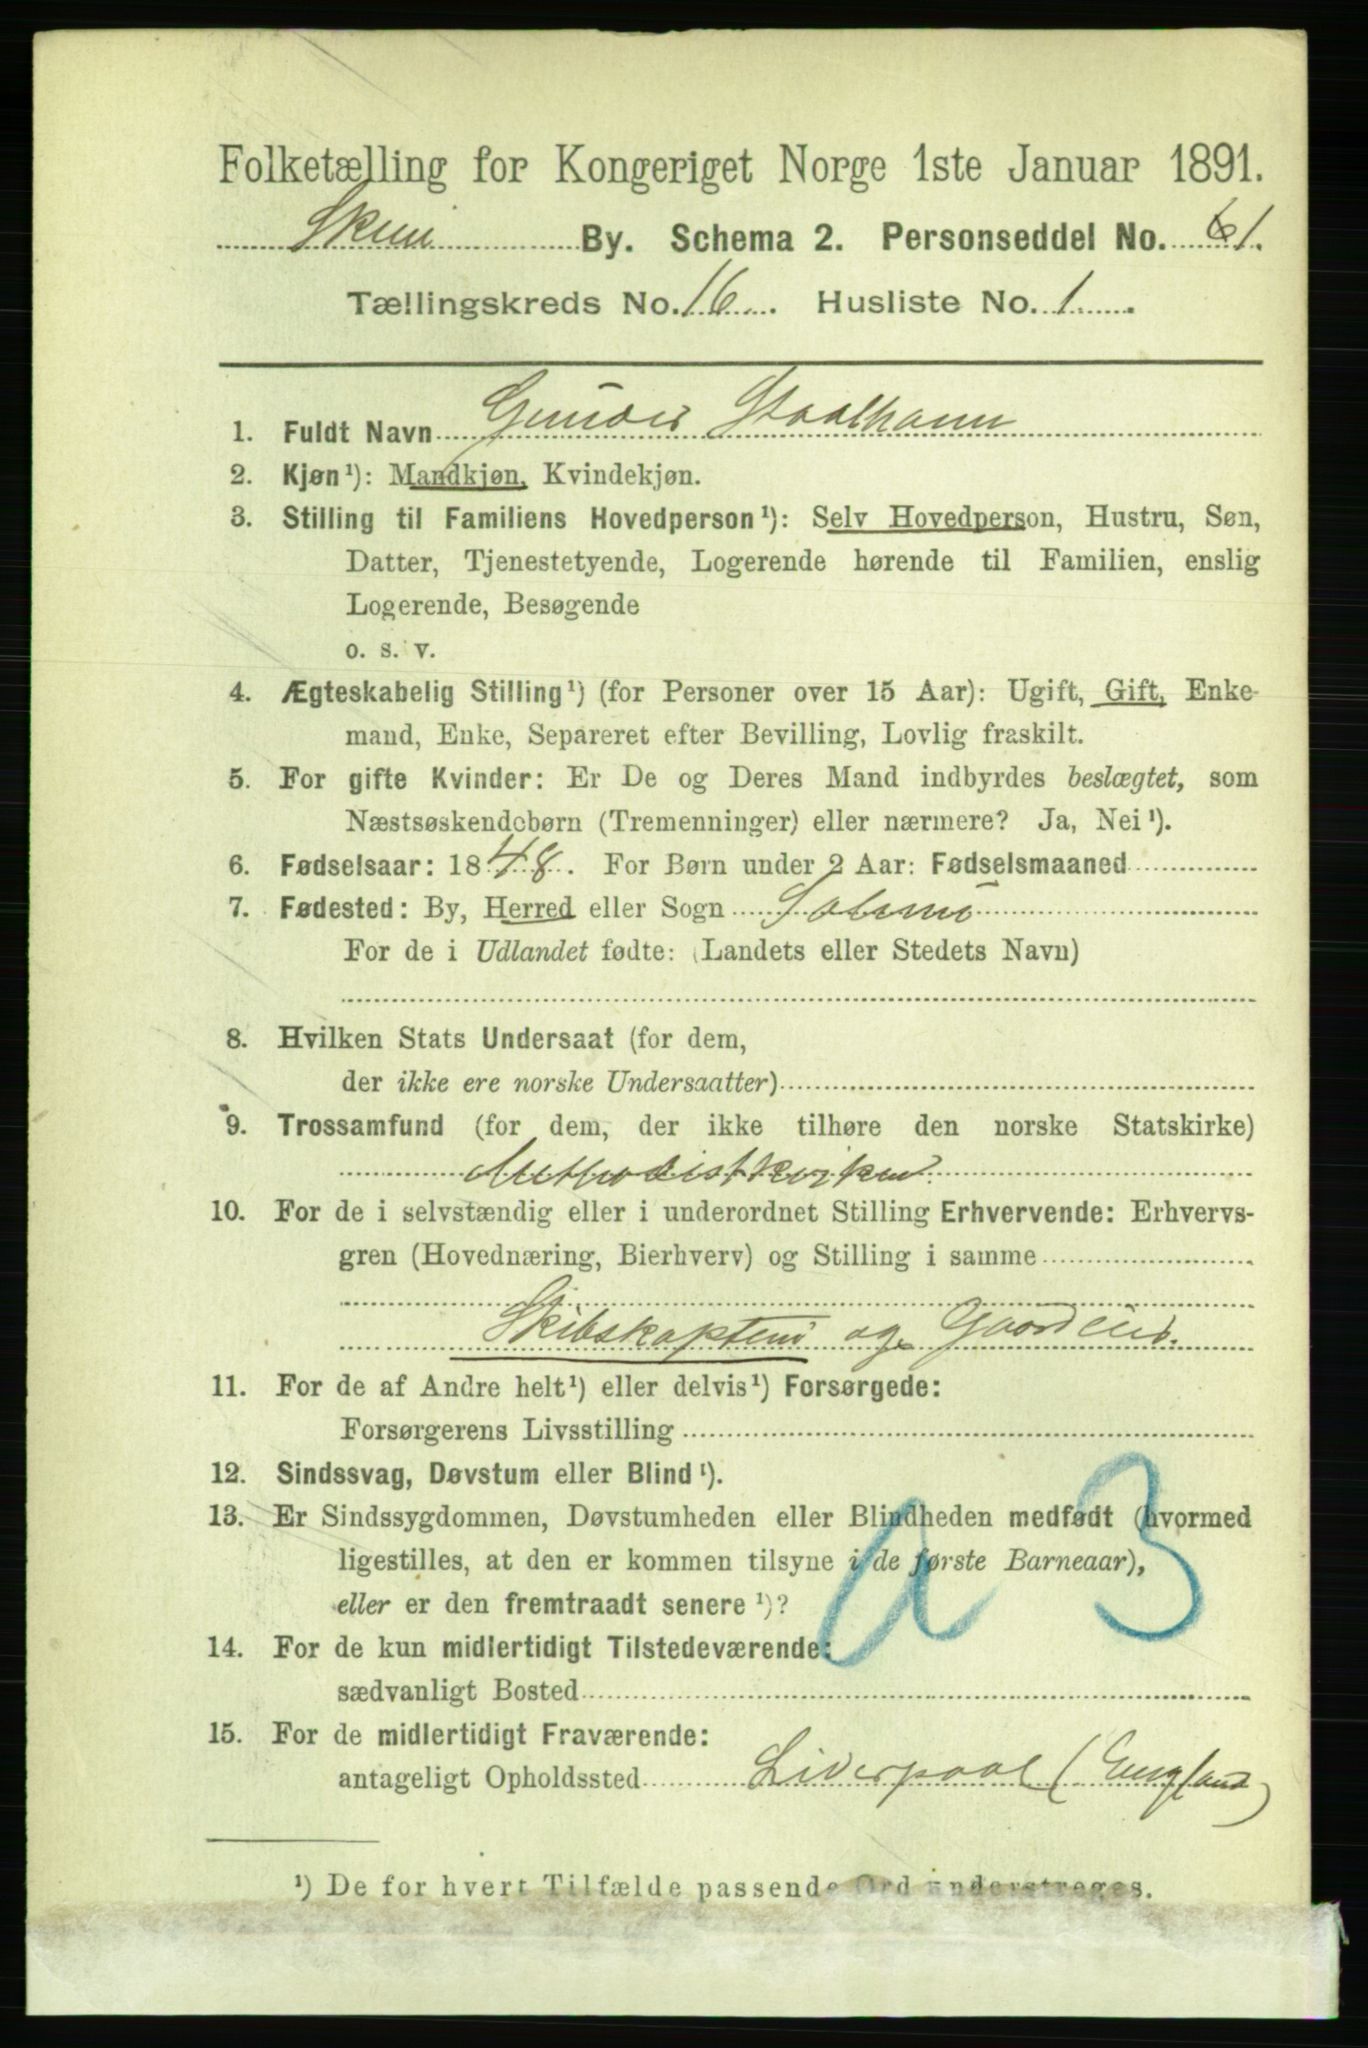 Folketælling for Kongeriget Norge 1ste Januar 1891.
Skien By. Schema 2. Personseddel No. 61.
Tællingskreds No. 16. Husliste No. 1.
1. Fuldt Navn Gunder Staalhane
2. Kjøn¹): Mandkjøn, Kvindekjøn.
3. Stilling til Familiens Hovedperson¹): Selv Hovedperson, Hustru, Søn,
Datter, Tjenestetyende, Logerende hørende til Familien, enslig
Logerende, Besøgende
o. s. v.
4. Ægteskabelig Stilling¹) (for Personer over 15 Aar): Ugift, Gift, Enke-
mand, Enke, Separeret efter Bevilling, Lovlig fraskilt.
5. For gifte Kvinder: Er De og Deres Mand indbyrdes beslægtet, som
Næstsøskendebørn (Tremenninger) eller nærmere? Ja, Nei¹).
6. Fødselsaar: 1848. For Børn under 2 Aar: Fødselsmaaned
7. Fødested: By, Herred eller Sogn Solum
For de i Udlandet fødte: (Landets eller Stedets Navn)
8. Hvilken Stats Undersaat (for dem,
der ikke ere norske Undersaatter)
9. Trossamfund (for dem, der ikke tilhøre den norske Statskirke)
Methodistkirken.
10. For de i selvstændig eller i underordnet Stilling Erhvervende: Erhvervs-
gren (Hovednæring, Bierhverv) og Stilling i samme
Skibskaptein og Gaardeier.
11. For de af Andre helt¹) eller delvis¹) Forsørgede:
Forsørgerens Livsstilling
12. Sindssvag, Døvstum eller Blind¹).
13. Er Sindssygdommen, Døvstumheden eller Blindheden medfødt (hvormed
ligestilles, at den er kommen tilsyne i de første Barneaar),
eller er den fremtraadt senere¹)?
a 3
14. For de kun midlertidigt Tilstedeværende:
sædvanligt Bosted
15. For de midlertidigt Fraværende:
antageligt Opholdssted Liverpool (England)
¹) De for hvert Tilfælde passende Ord understreges.